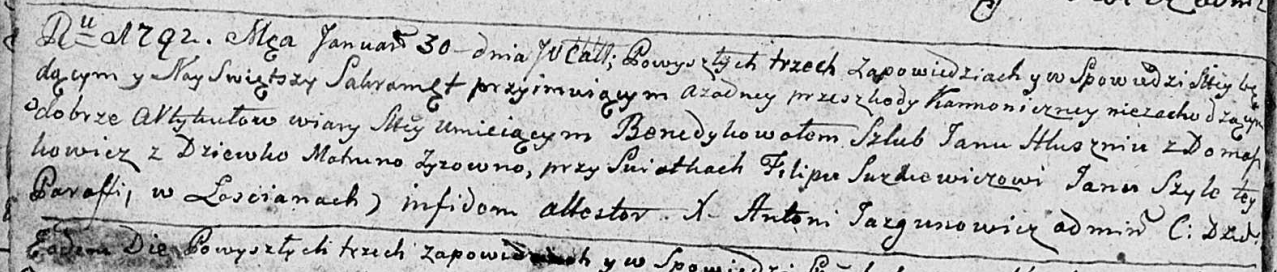 Ru 1792. Mca Januarÿ 30 dnia JWCałł; Powyszłych trzech zapowiedziach y w Spowiedzi Stey bę
dącym y Nayświętszy Sakramęt przyimuiącym a żadney przeszkody Kannoniczney niezachodzącym
dobrze Artykułow wiary Stey umieiącym Benedykowałem Szlub Janu Hluszniu z Domasz
kowicz z Dziewko Matruno Zyrowno, przy Swiatkach Filipu Surkiewiczowi Janu Szyło tey
Paraffi, w Łoscianach) infidem attestor. X. Antoni Jazgunowicz admin C: Dzed:
Eadem Die Powyszłych trzech zapowiedziach y w Spowiedzi